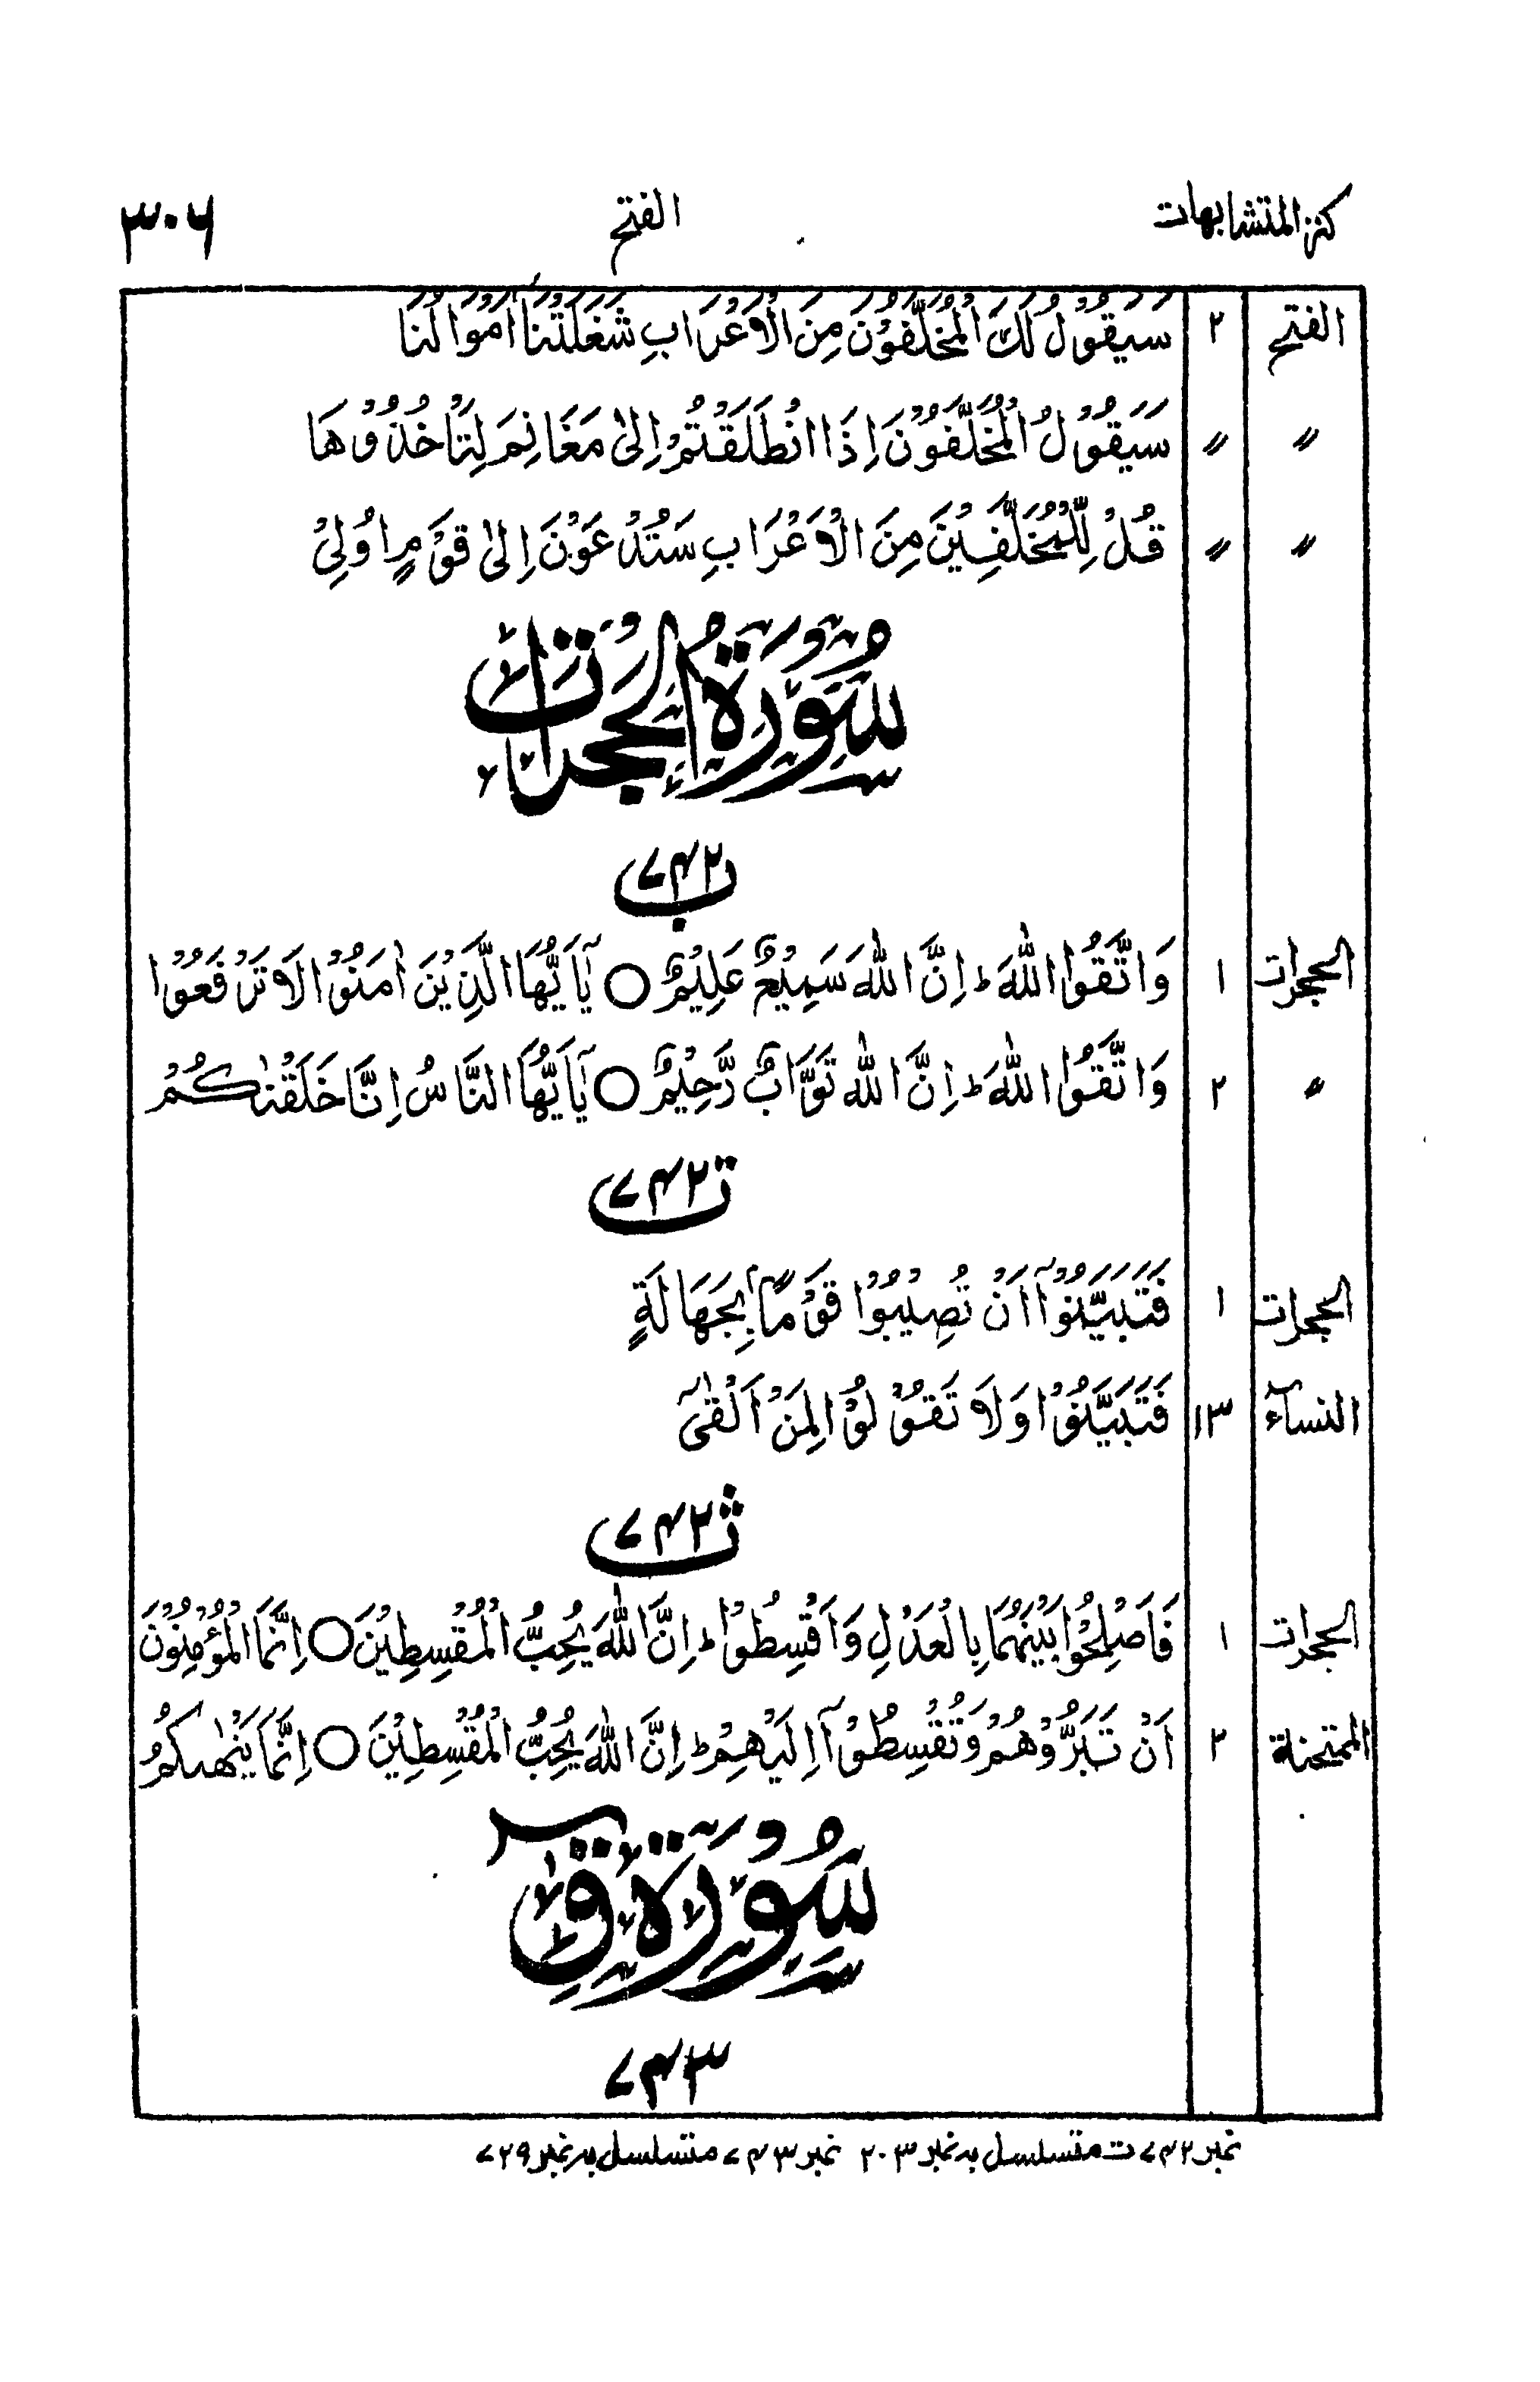 كنز المتشابهات الفتح ۳۰۶
الفتح ۲ سَيَقُوْلُ لَكَ الْمُخَلَّفُوْنَ مِنَ الْاَعْرَابِ شَغَلَتْنَا اَمْوَالُنَا
〃 〃 سَيَقُوْلُ الْمُخَلَّفُوْنَ اِذَا انْطَلَقْتُمْ اِلٰى مَغَانِمَ لِتَاْخُذُوْهَا
〃 〃 قُلْ لِّلْمُخَلَّفِيْنَ مِنَ الْاَعْرَابِ سَتُدْعَوْنَ اِلٰى قَوْمٍ اُولِيْ
سُوْرَةُ الْحُجُرَاتِ
۷۴۲ ب
الحجرات ۱ وَاتَّقُوا اللّٰهَ ؕ اِنَّ اللّٰهَ سَمِيْعٌ عَلِيْمٌ ○ يٰۤاَيُّهَا الَّذِيْنَ اٰمَنُوْا لَا تَرْفَعُوْا
〃 ۲ وَاتَّقُوا اللّٰهَ ؕ اِنَّ اللّٰهَ تَوَّابٌ رَّحِيْمٌ ○ يٰۤاَيُّهَا النَّاسُ اِنَّا خَلَقْنٰكُمْ
۷۴۲ ت
الحجرات ۱ فَتَبَيَّنُوْۤا اَنْ تُصِيْبُوْا قَوْمًاۢ بِجَهَالَةٍ
النسآء ۱۳ فَتَبَيَّنُوْا وَلَا تَقُوْلُوْا لِمَنْ اَلْقٰۤى
۷۴۲ ث
الحجرات ۱ فَاَصْلِحُوْا بَيْنَهُمَا بِالْعَدْلِ وَاَقْسِطُوْا ؕ اِنَّ اللّٰهَ يُحِبُّ الْمُقْسِطِيْنَ ○ اِنَّمَا الْمُؤْمِنُوْنَ
الممتحنة ۲ اَنْ تَبَرُّوْهُمْ وَتُقْسِطُوْۤا اِلَيْهِمْ ؕ اِنَّ اللّٰهَ يُحِبُّ الْمُقْسِطِيْنَ ○ اِنَّمَا يَنْهٰىكُمُ
سُوْرَةُ قٓ
۷۴۳
نمبر ۷۴۲ ت متسلسل بہ نمبر ۲۰۳ نمبر ۷۴۳ متسلسل بہ نمبر ۷۲۹